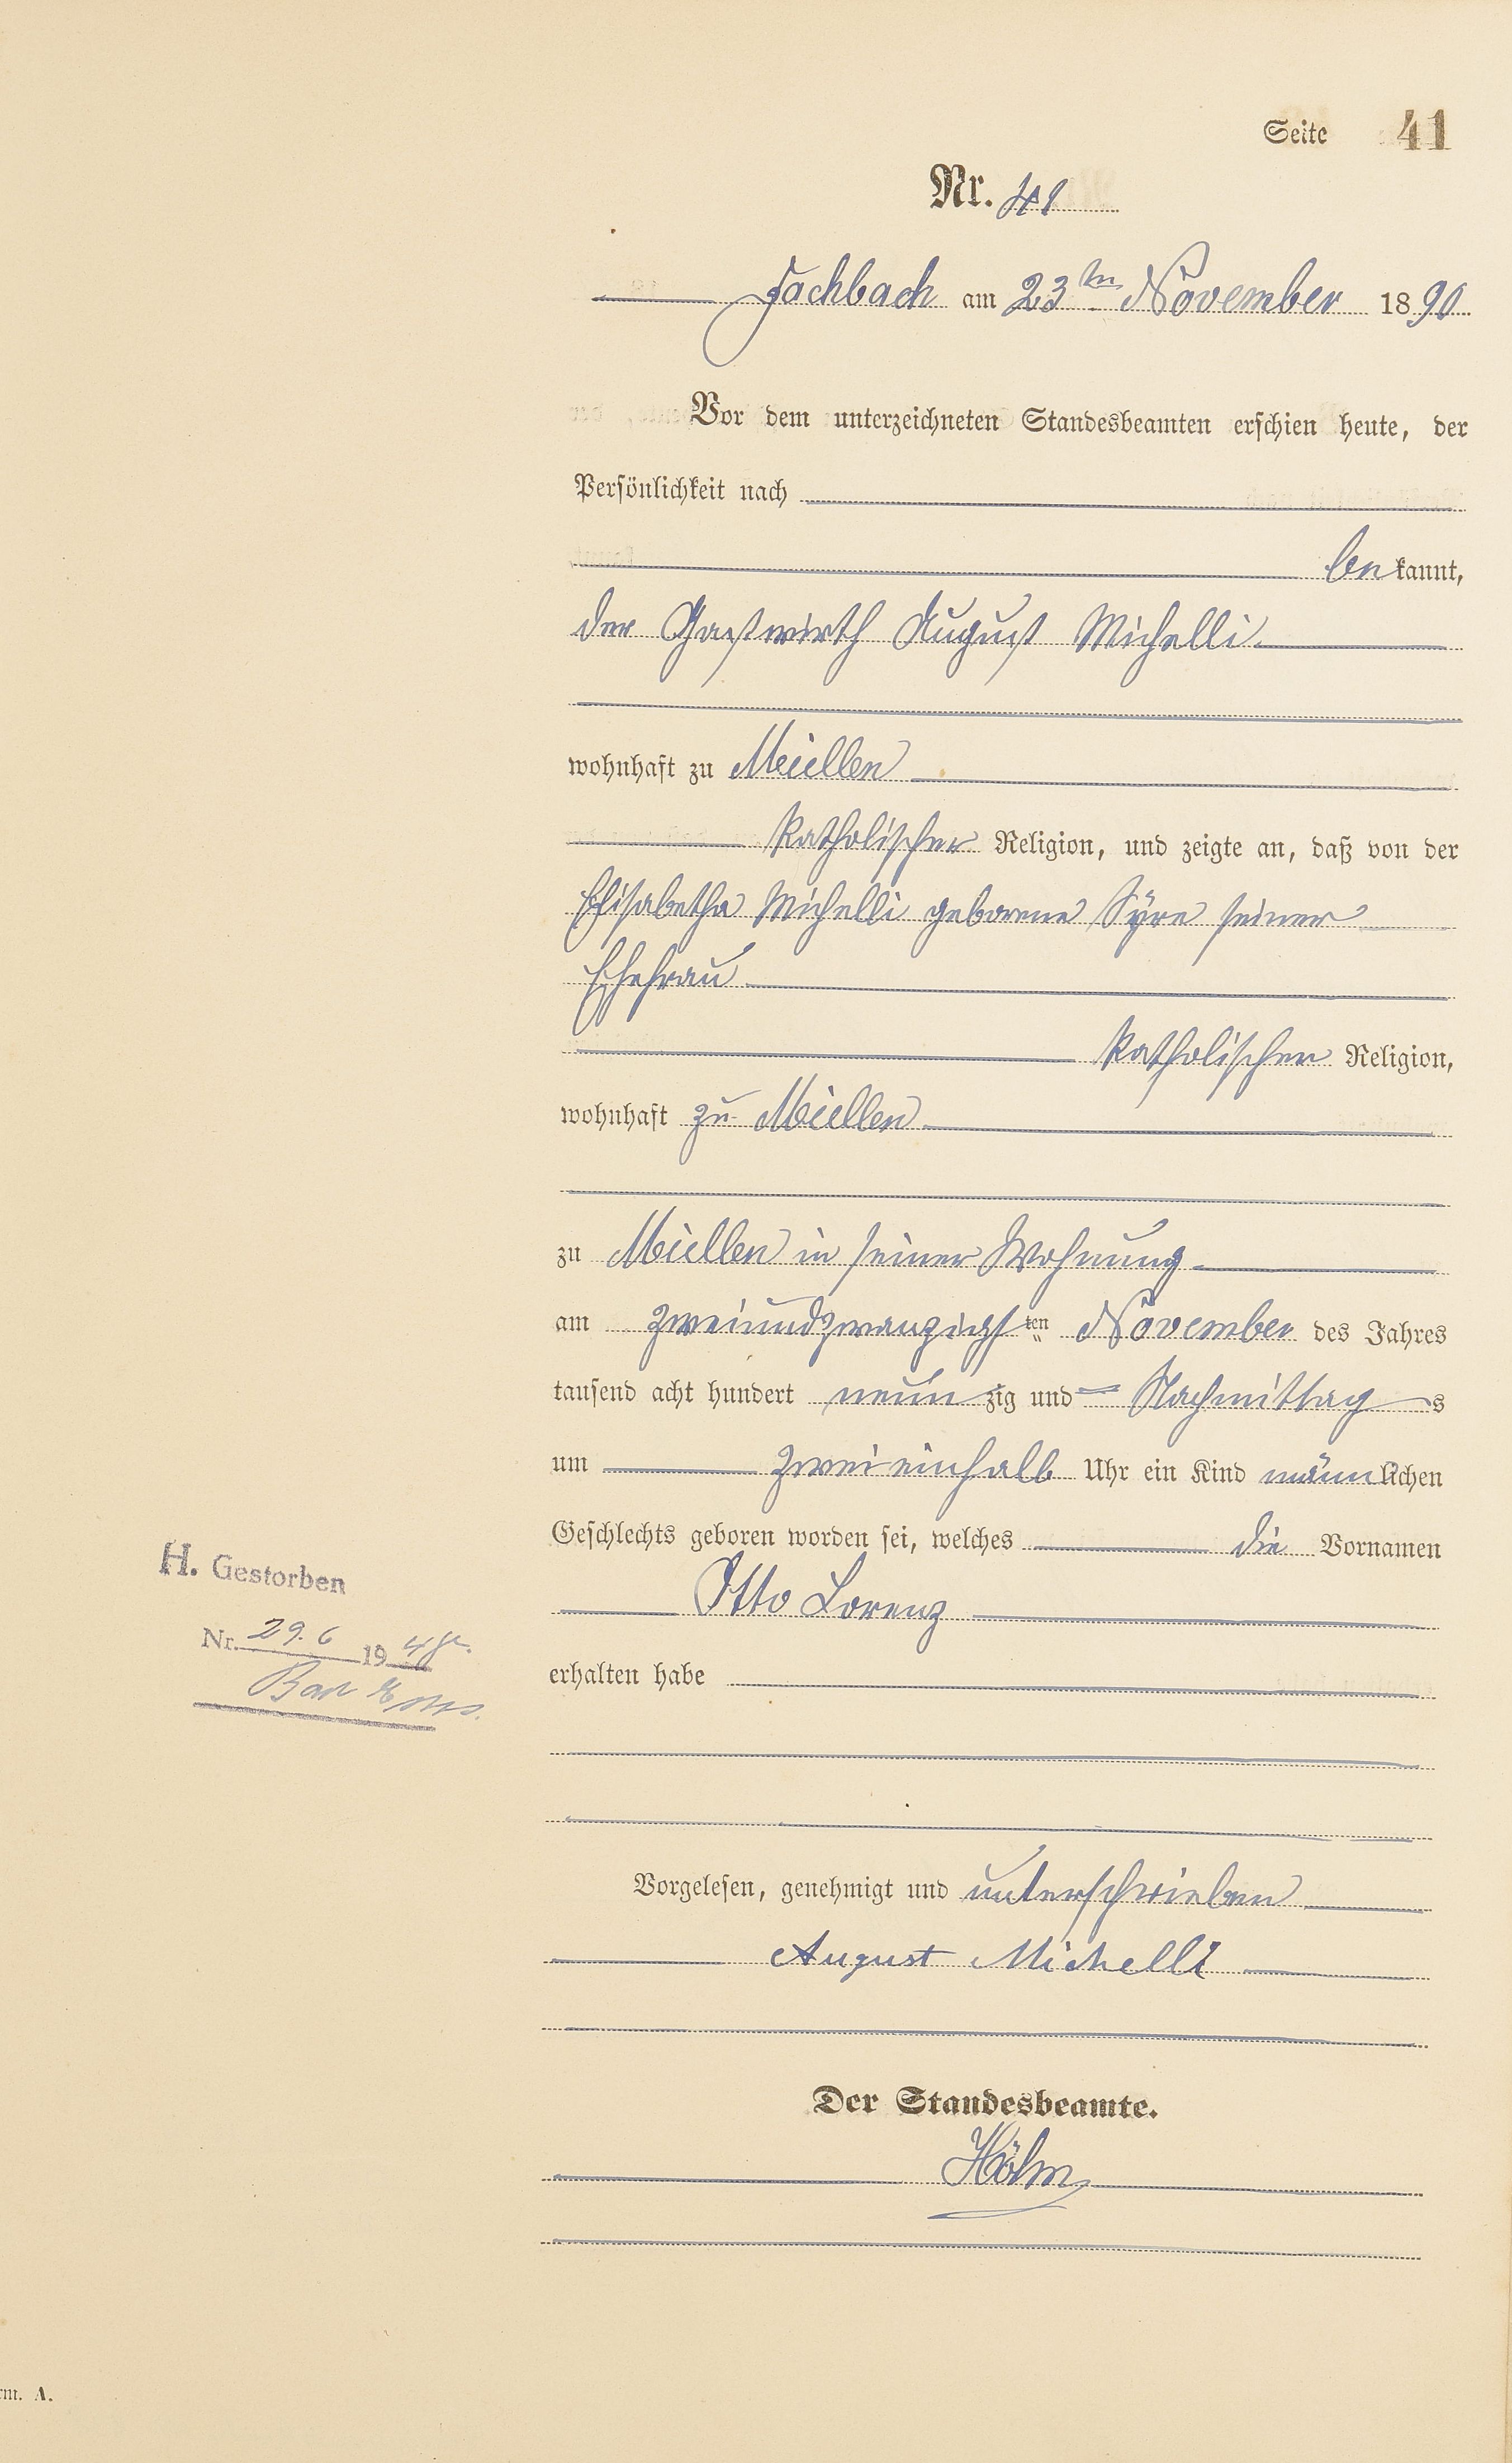 Seite 41
Nr. 41
Fachbach am 23ten November 1890
Vor dem unterzeichneten Standesbeamten erschien heute, der
Persönlichkeit nach
bekannt,
der Gastwirth August Michelli
wohnhaft zu Miellen
katholischer Religion, und zeigte an, daß von der
Elisabetha Michelli geborene Syre seiner
Ehefrau
katholischer Religion,
wohnhaft zu Miellen
zu Miellen in seiner Wohnung
am zweiundzwanzigsten November des Jahres
tausend acht hundert neunzig und = Nachmittags
um zweieinhalb Uhr ein Kind männlichen
Geschlechts geboren worden sei, welches die Vornamen
H. Gestorben
Otto Lorenz
Nr. 29.6 19
erhalten habe
Bad Ems.
Vorgelesen, genehmigt und unterschrieben
August Michelli
Der Standesbeamte.
Höhn
rm. A.